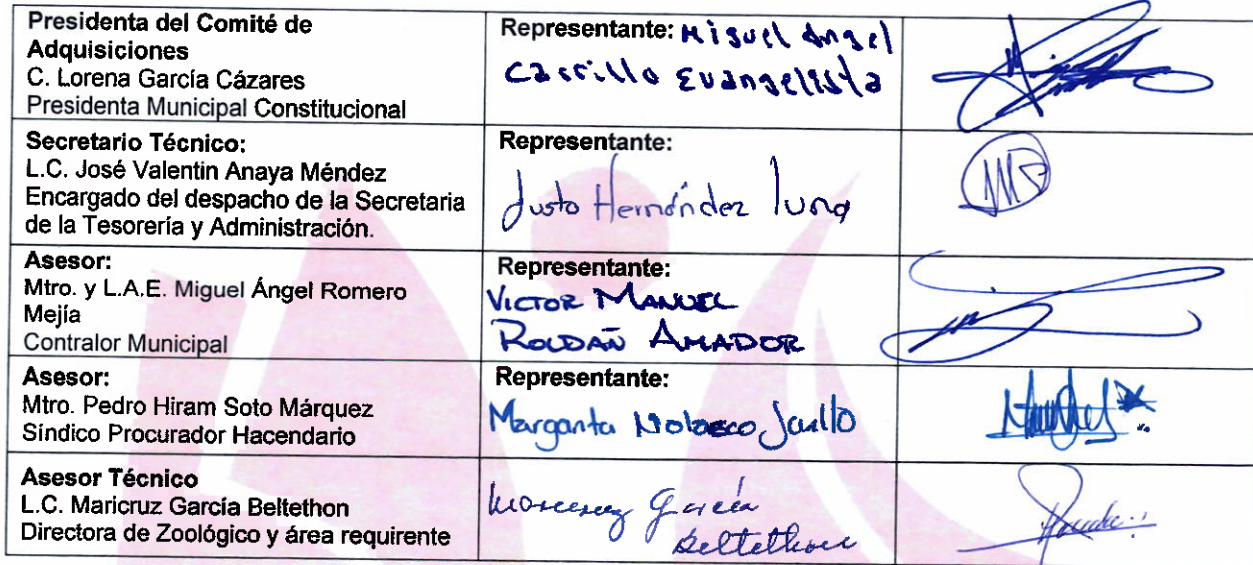 Presidenta del Comité de
Adquisiciones
C. Lorena García Cázares
Presidenta Municipal Constitucional
Representante: Miguel Angel
Carrillo Evangelista
Secretario Técnico:
L.C. José Valentin Anaya Méndez
Encargado del despacho de la Secretaria
de la Tesorería y Administración.
Representante:
Justo Hernández luna
Asesor:
Mtro. y L.A.E. Miguel Ángel Romero
Mejía
Contralor Municipal
Representante:
VICTOR MANUEL
ROLDAÑ AMADOR
Asesor:
Mtro. Pedro Hiram Soto Márquez
Síndico Procurador Hacendario
Representante:
Margarita Nolasco
Asesor Técnico
L.C. Maricruz García Beltethon
Directora de Zoológico y área requirente
Maricruz García
Beltethon